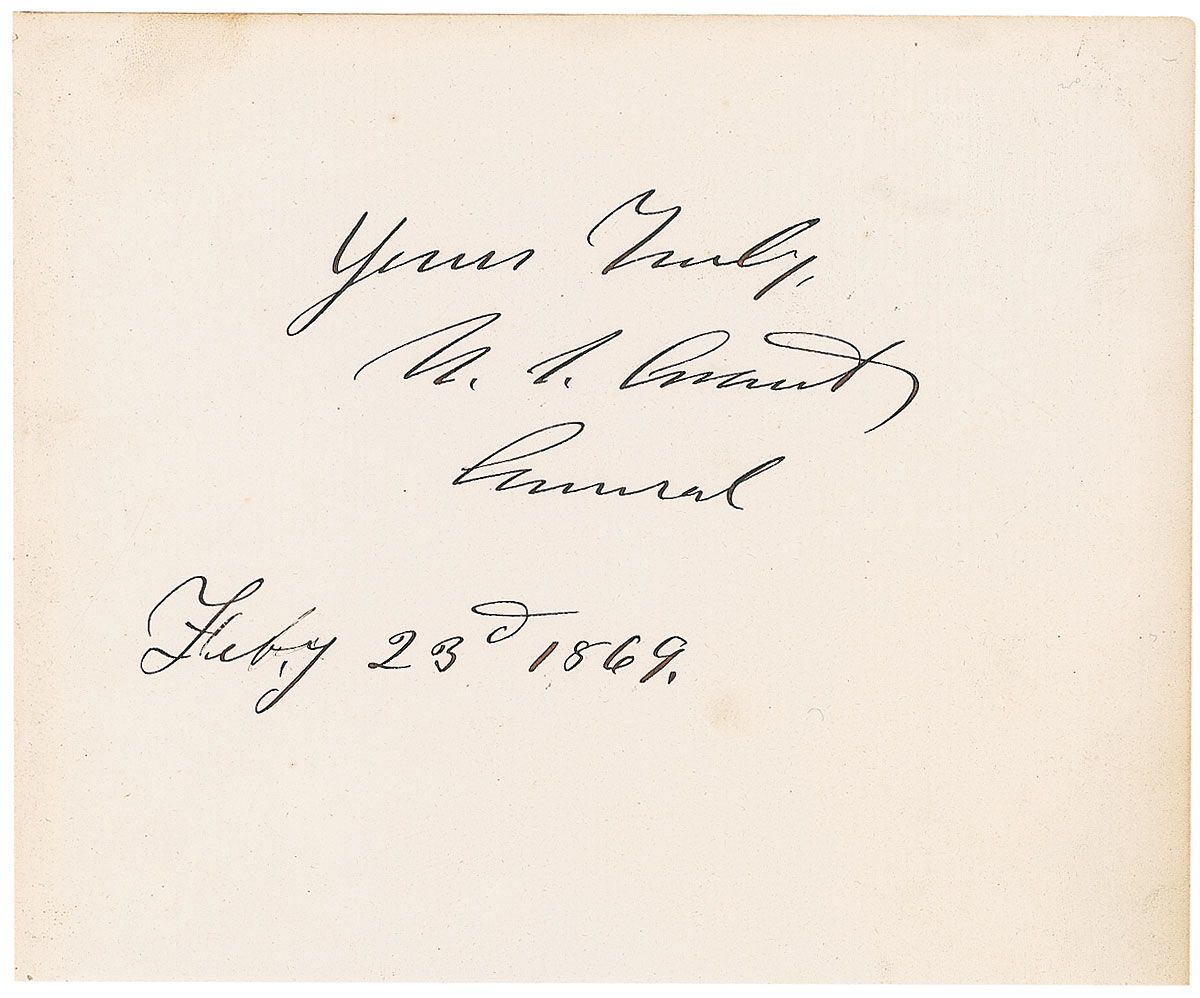 Yours Truly,
U. S. Grant
General
Feby 23d 1869.